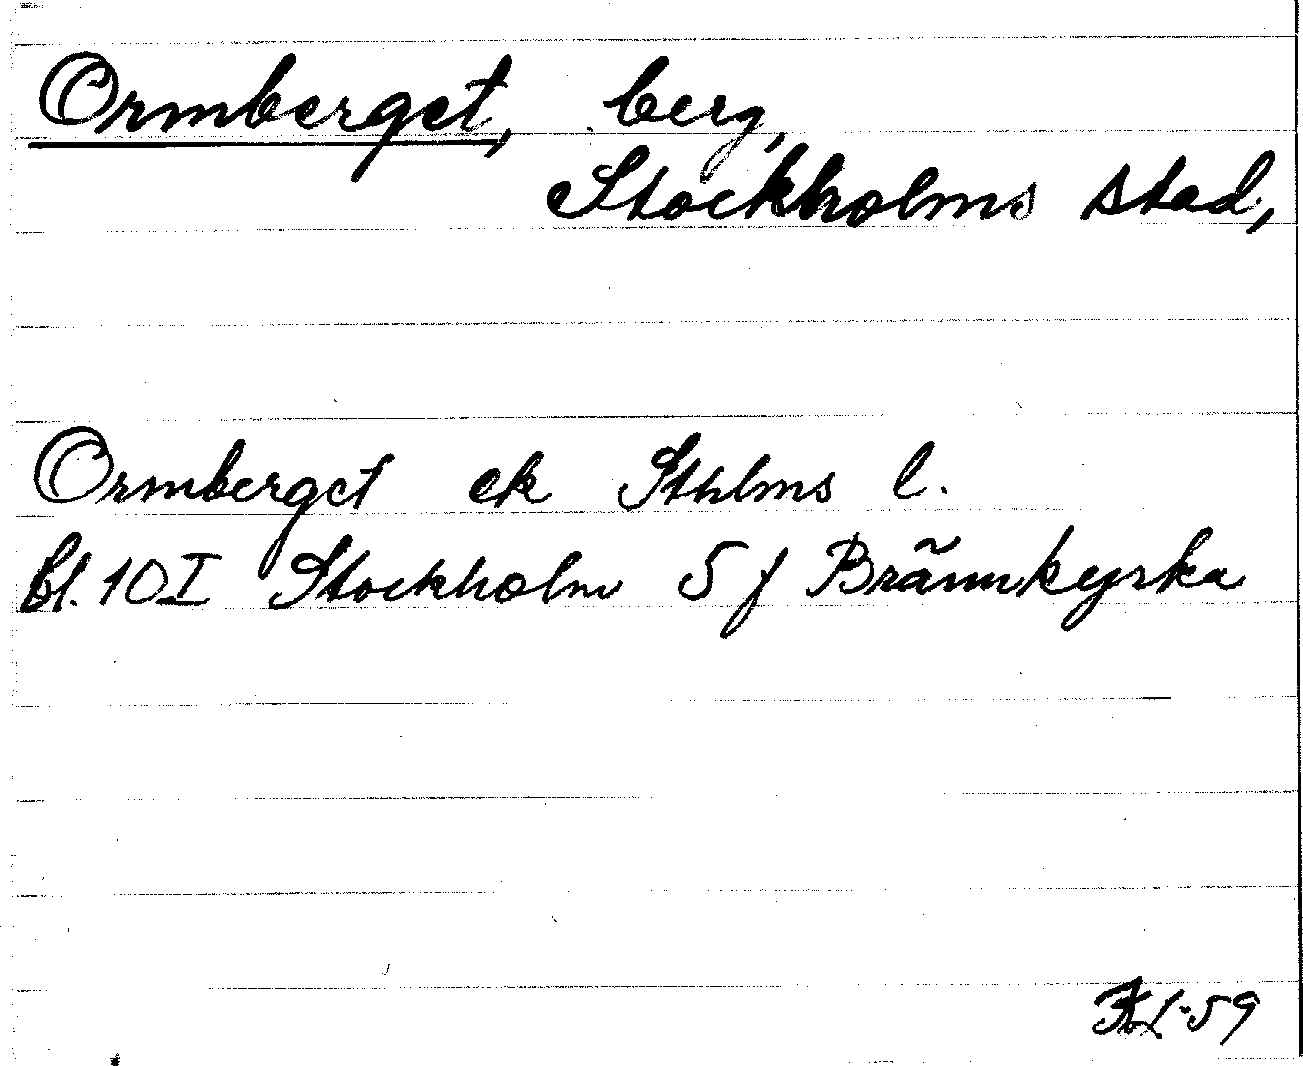 Ormberget, berg,
Stockholms stad,
Ormberget ek Sthlms l.
Bl. 10 I Stockholm 5 f Brännkyrka